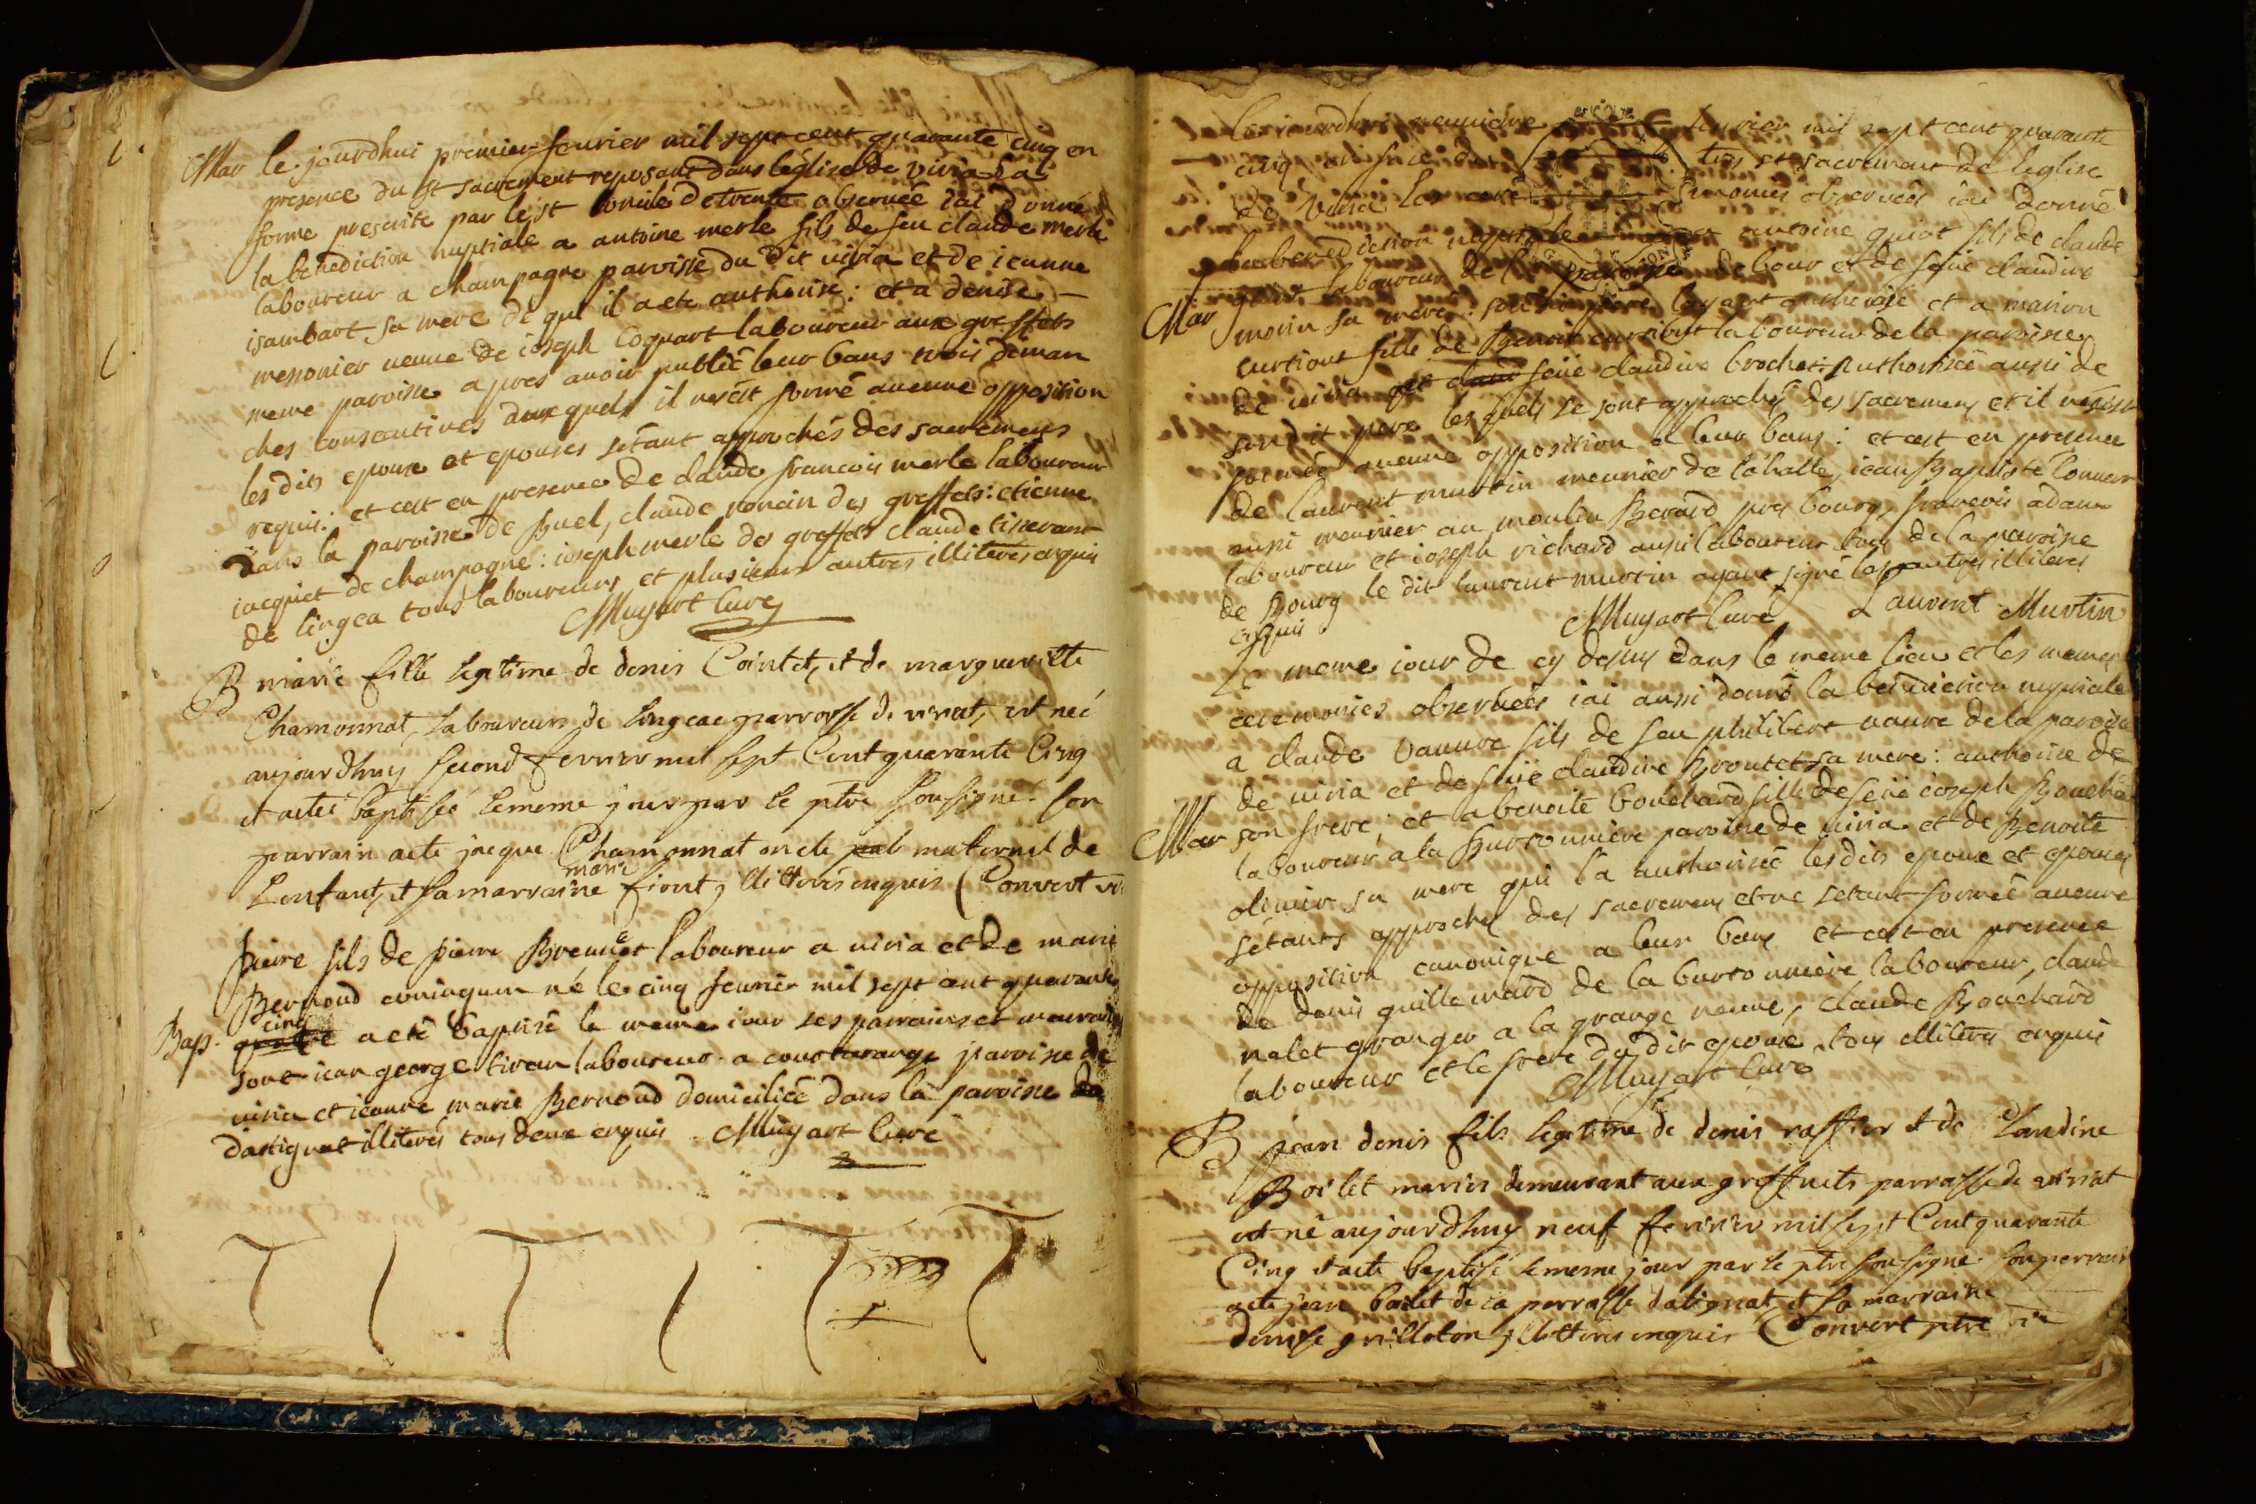 Mar le jourdhui premier feurier mil sept cent quarante cinq en
presence du st sacrement reposant dans léglise de viria la
forme prescrite par le st concile de trente obseruée iai donné
la benediction nuptiale a antoine merle fils de feu claude merle
laboureur a champagne paroisse du dit viria et de ieanne
isambart sa mere de qui il a ete authorisé : et a denise
messonier veuue de ioseph Coquart laboureur aux greffets
meme paroisse apres auoir publié leur bans trois diman
ches consecutives auxquels il ne s'est formé aucune opposition
les dits epoux et epouses sétant approchés des sacremens
requis : et cest en presence de claude francois merle laboureur
dans la paroisse de Buel, claude ronein des greffets : etienne
iacquiet de champagne : ioseph merle des greffets claude tisserant
de lingea tous laboureurs et plusieurs autres illiteres enquis
Muyart Curé
B marie fille legitime de denis Cointet, et de margueritte
Chamonnat, laboureurs de lingeae parroisse de viriat, est neé
aujourdhuy second ferurier mil sept Cent quarante Cinq
et aeté baptisée lememe jour par le ptre soussigné. son
parrain aeté jacque Chamonnat oncle pab maternel de
Lenfant, et sa marraine marie fiont, illitterés enquis (Convert vi
pierre fils de pierre Brennet laboureur a viria et de marie
Bernoud conioques né le cinq feurier mil sept cent quarante
Bap. quatre cinq a eté baptisé le meme iour ses parains et maraine
sont iean george tireau laboureur a cour paroisse de
viria et ieanne marie Bernoud domiciliée dans la paroisse de
dattignat illiterés tous deux enquis . Muyart Curé
T I T I T T
Le iourdhui neuuieme feurier mil sept cent quarante
cinq en face du sacrement de leglise
de viria Les ceremonies obseruées iai donné
la benediction nuptiale antoine guiot fils de claude
guiot laboureur de la paroisse de bour et de feüe claudine
Mar morin sa mere : son pere layant authorisé et a marion
curtiout fille de Benoit curtiout laboureur de la paroisse
de viria et claud feüe claudine brochet : authorisée aussi de
son dit pere lesquels se sont approchés des sacremens et il ne s'est
formée aucune opposition a leur bans : et cest en presence
de laurent murtin meunier de la halle, iean Baptiste Conuers
aussi meunier au moulin Berard pres bourg, francois adam
laboureur et ioseph richard aussi laboureur tous de la paroisse
de Bourg le dit laurent murtin ayant signé les autres illiteres
enquis Muyart Curé Laurent Murtin
Le meme iour de cy dessus dans le meme lieu et les memes
ceremonies obseruées iai aussi donné la benediction nuptiale
a claude vauure fils de feu philibert vauure de la paroisse
de viria et de feüe claudine Broutet sa mere : authorisé de
Mar son frere ; et a benoite bouchard fille de feüe ioseph Bouchar
laboureur a la Burtonniere paroisse de viria et de Benoite
oliuier sa mere qui l'a authorisée les dits epoux et epouses
sétants approchés des sacremens et ne setant formée aucune
opposition canonique a leur bans et cest en presence
de denis guillemard de la burtonniere laboureur, claude
nalet granger a la grange neuue, claude Bouchard
laboureur et le frere du dit epoux tous illiteres enquis
Muyart Curé
B jean denis fils legitime de denis raffier et de Landine
Boilet mariés demeurant aux greffuets parroisse de viriat
est né aujourdhuy neuf ferurier mil sept Cent quarante
Cinq et aeté baptisé lememe jour par le ptre soussigné. son parrain
aeté jean boilet de la parroisse datignat, et sa marraine
denise grilleton, illitterés enquis Convert ptre vi